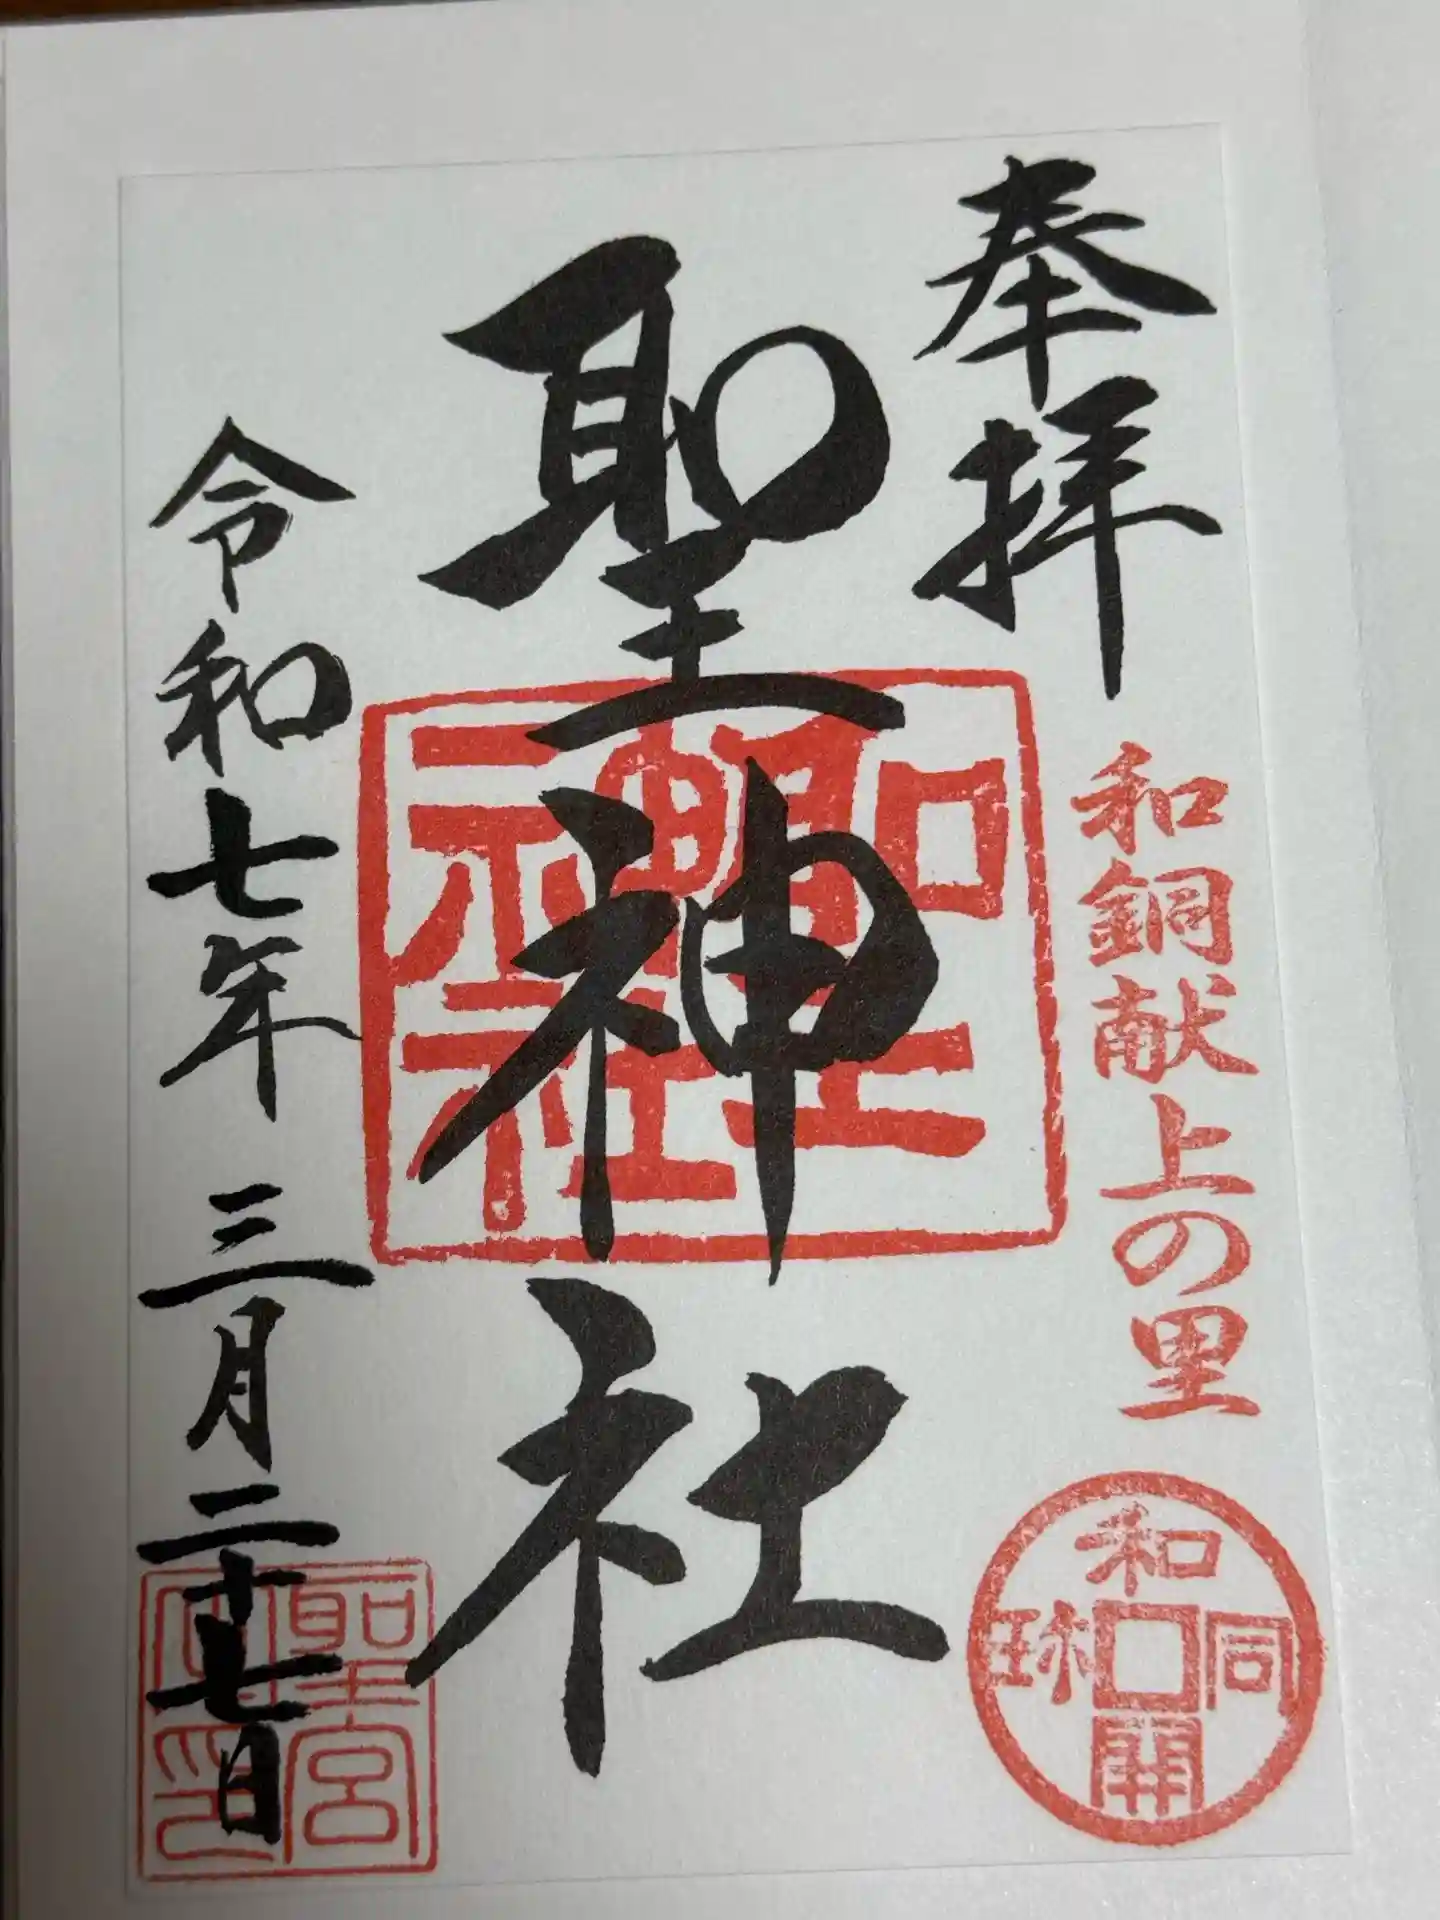 奉拝
和銅献上の里
和同開珎
聖神社
聖神社
令和七年 三月二十七日
聖宮